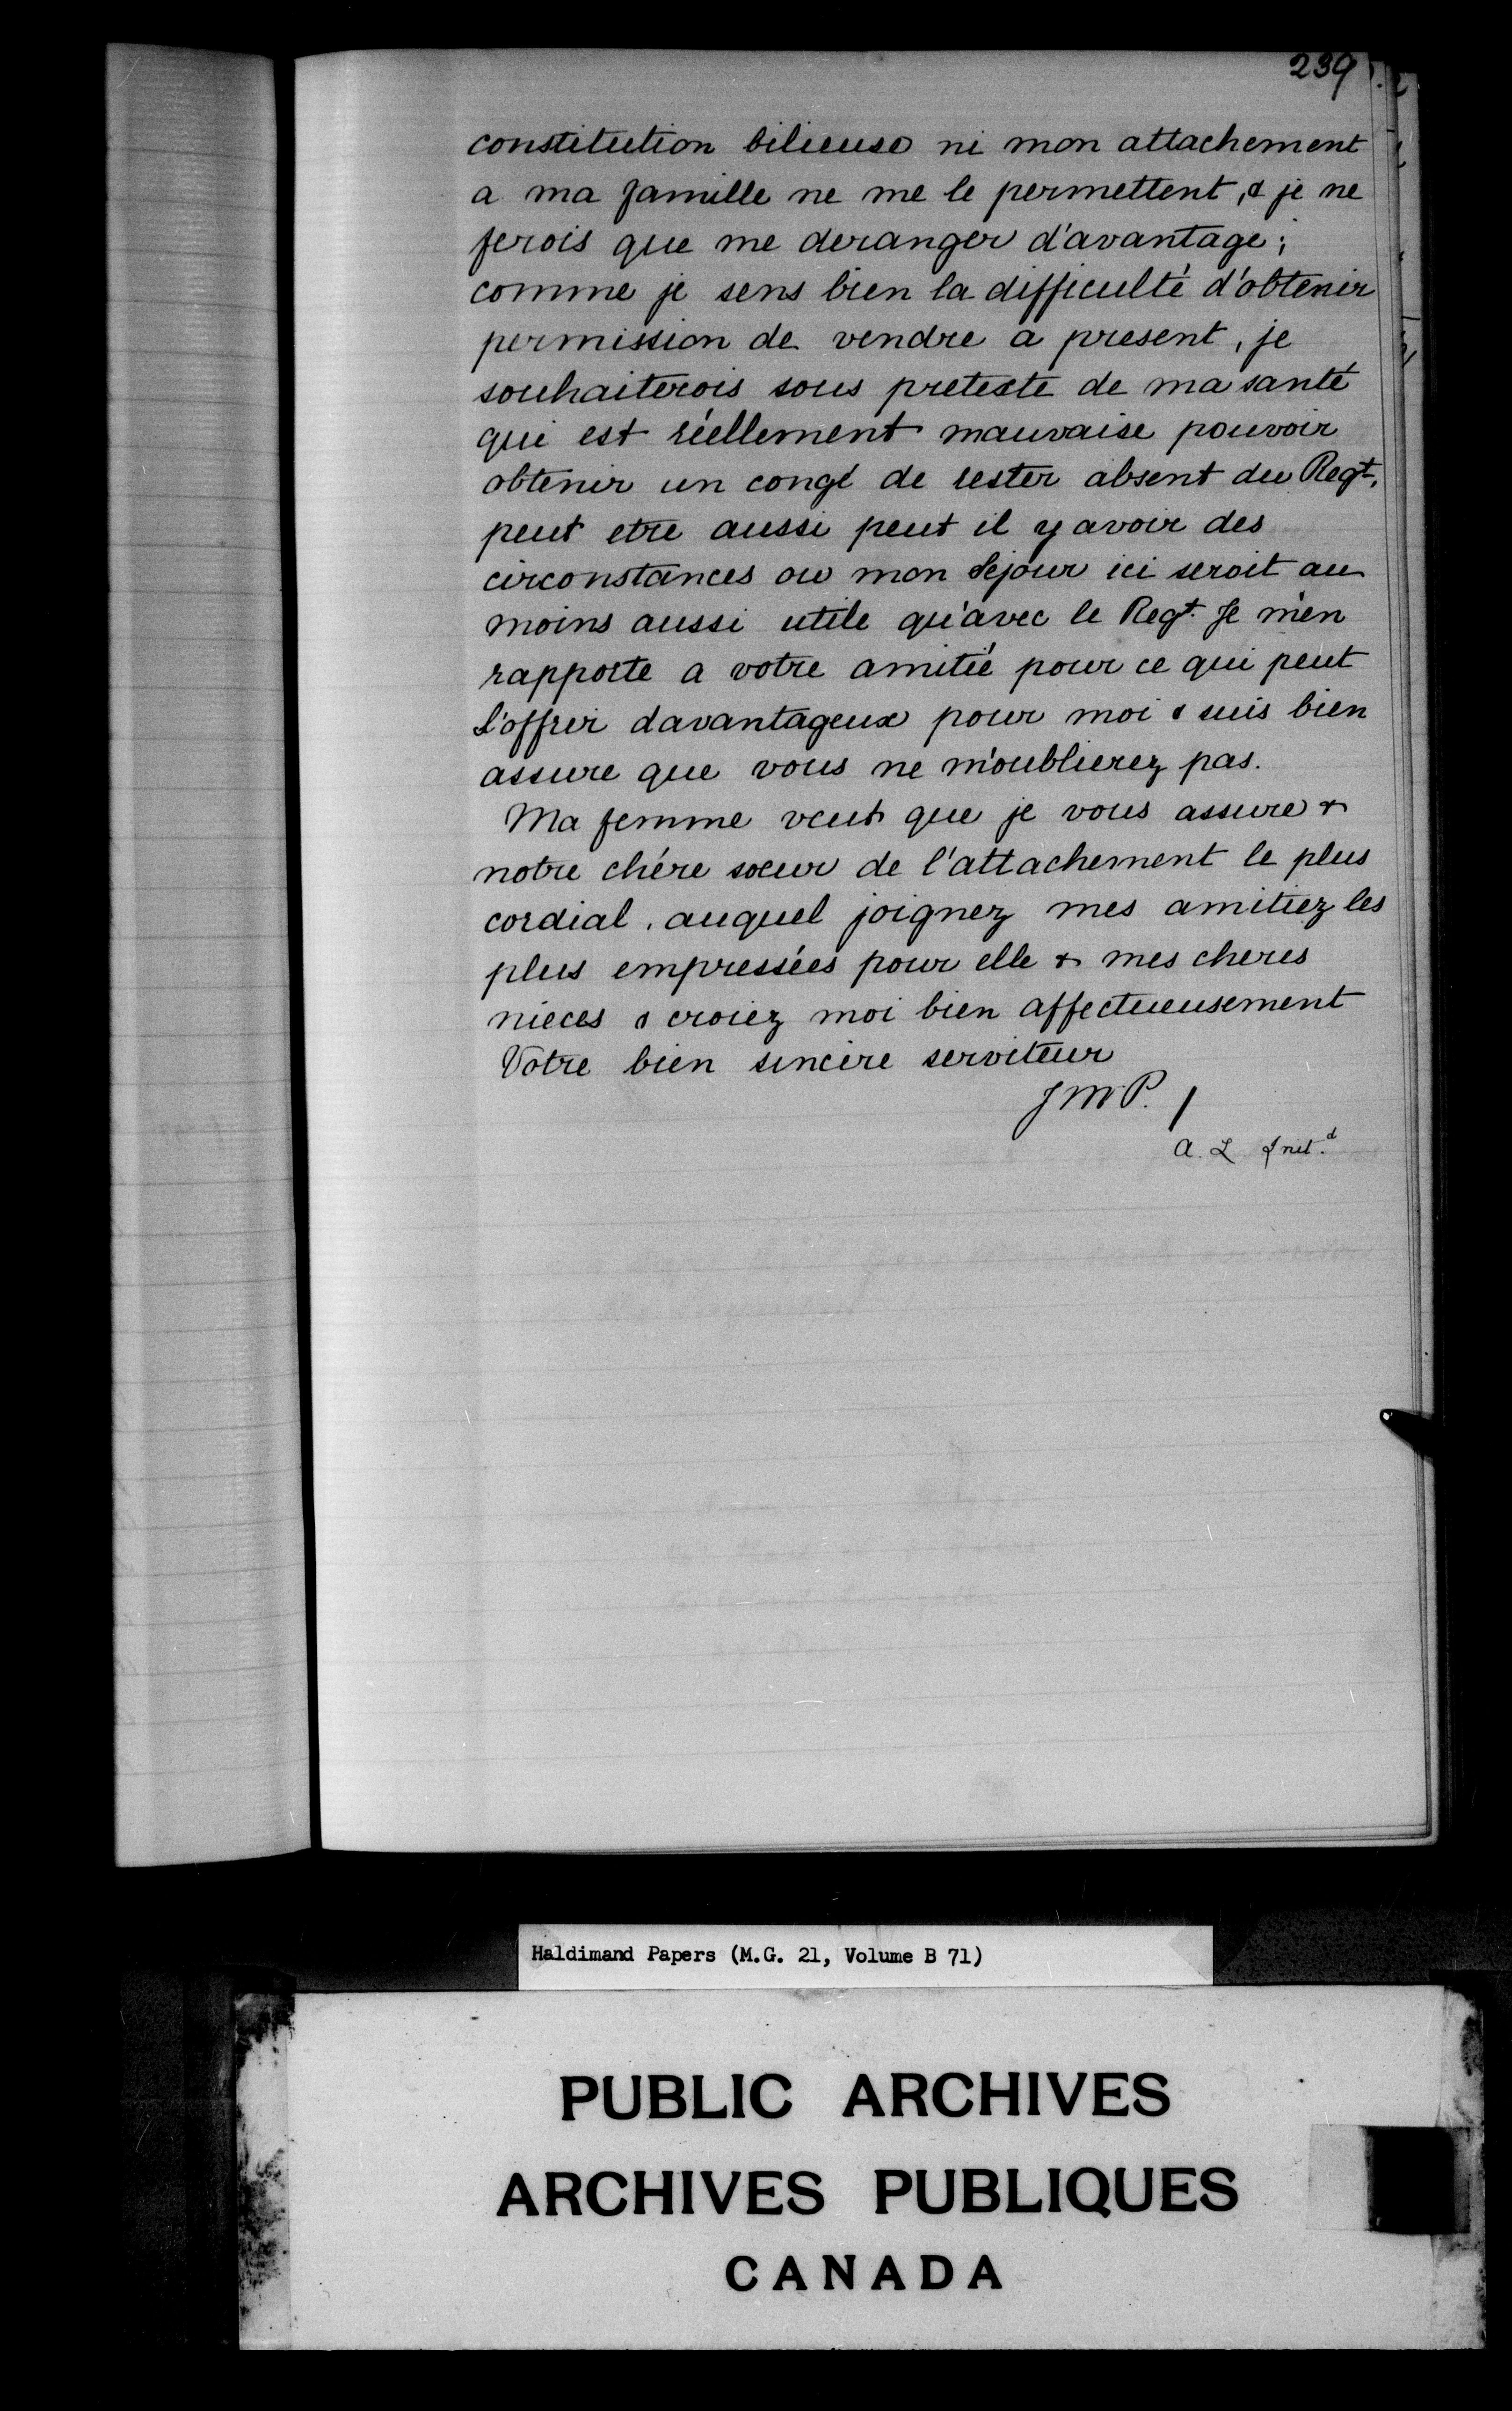 239
constitution bilieuse ni mon attachement
a ma famille ne me le permettent, & je ne
ferois que me deranger d'avantage;
comme je sens bien la difficulté d'obtenir
permission de vendre a present, je
souhaiterois sous pretexte de ma santé
qui est réellement mauvaise pouvoir
obtenir un congé de rester absent du Regt.
peut etre aussi peut il y avoir des
circonstances ou mon Séjour ici seroit au
moins aussi utile qu'avec le Regt. Je m'en
rapporte a votre amitié pour ce qui peut
s'offrir davantageux pour moi & suis bien
assure que vous ne m'oublierez pas.
Ma femme veut que je vous assure &
notre chére soeur de l'attachement le plus
cordial, auquel joignez mes amitiez les
plus empressées pour elle & mes cheres
nieces & croiez moi bien affectueusement
Votre bien sincere serviteur
J M P. /
A. L Init.d
Haldimand Papers (M.G. 21, Volume B 71)
PUBLIC ARCHIVES
ARCHIVES PUBLIQUES
CANADA